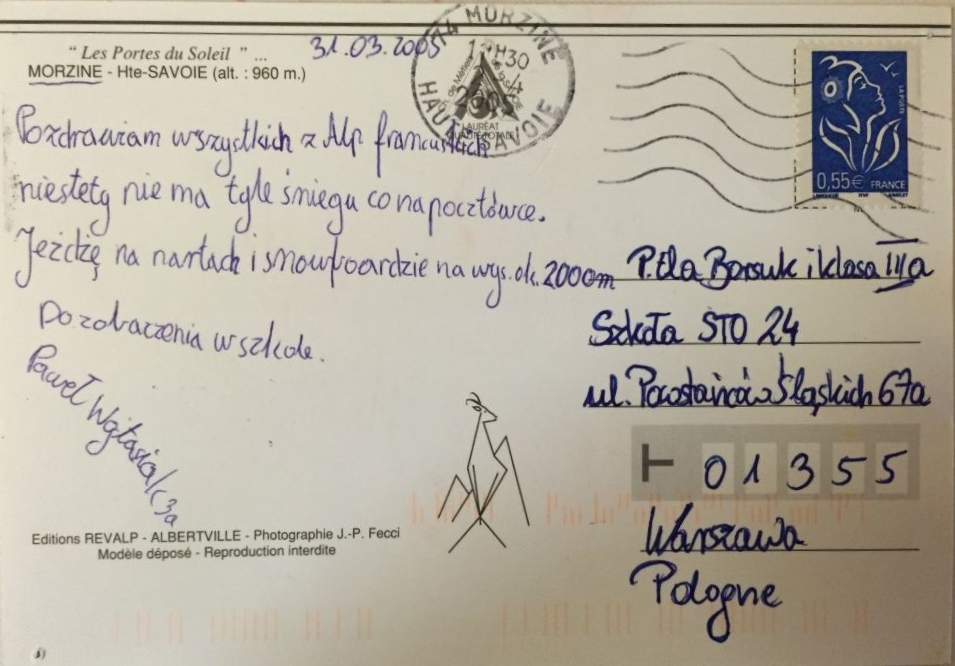 " Les Portes du Soleil " ...
MORZINE - Hte-SAVOIE (alt. : 960 m.)
31.03.2005
74 MORZINE
H30
2005
LAURÉAT
HAUTE SAVOIE
LA POSTE
0,55€ FRANCE
Pozdrawiam wszystkich z Alp francuskich
niestety nie ma tyle śniegu co na pocztówce.
Jeżdżę na nartach i snowboardzie na wys. ok. 2000m
Do zobaczenia w szkole.
Paweł 3a
P. Ela Borsuk i klasa IIIa
Szkoła STO 24
ul. Powstańców Śląskich 67a
01355
Warszawa
Pologne
Editions REVALP - ALBERTVILLE - Photographie J.-P. Fecci
Modèle déposé - Reproduction interdite